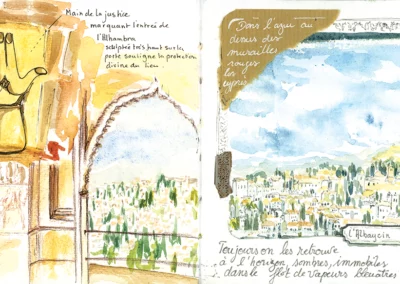 Main de la justice
marquant l'entrée de
l'Alhambra
sculptée très haut sur la
porte souligne la protection
divine du lieu.
Dans l'azur au
dessus des
murailles
rouges
les
cyprès
l'Albaycin
Toujours on les retrouve
à l'horizon, sombres, immobiles
dans le flot de vapeurs bleuâtres